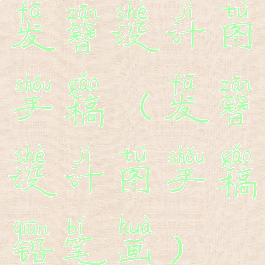 fà zān shè jì tú
发簪设计图
shǒu gǎo fà zān
手稿(发簪
shè jì tú shǒu gǎo
设计图手稿
qiān bǐ huà
铅笔画)